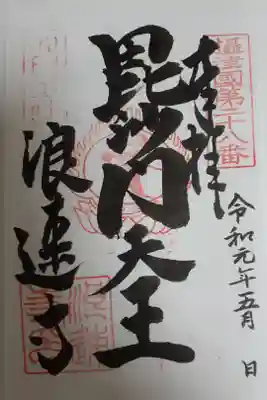 攝津國第十八番
奉拝
令和元年五月　日
毘沙門天王
浪速寺